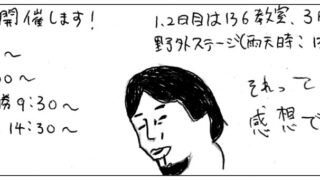 開催します!
~
00~
勝9:30~
14:30~
1.2日目は136教室、3
野外ステージ(雨天時:
それって
感想で